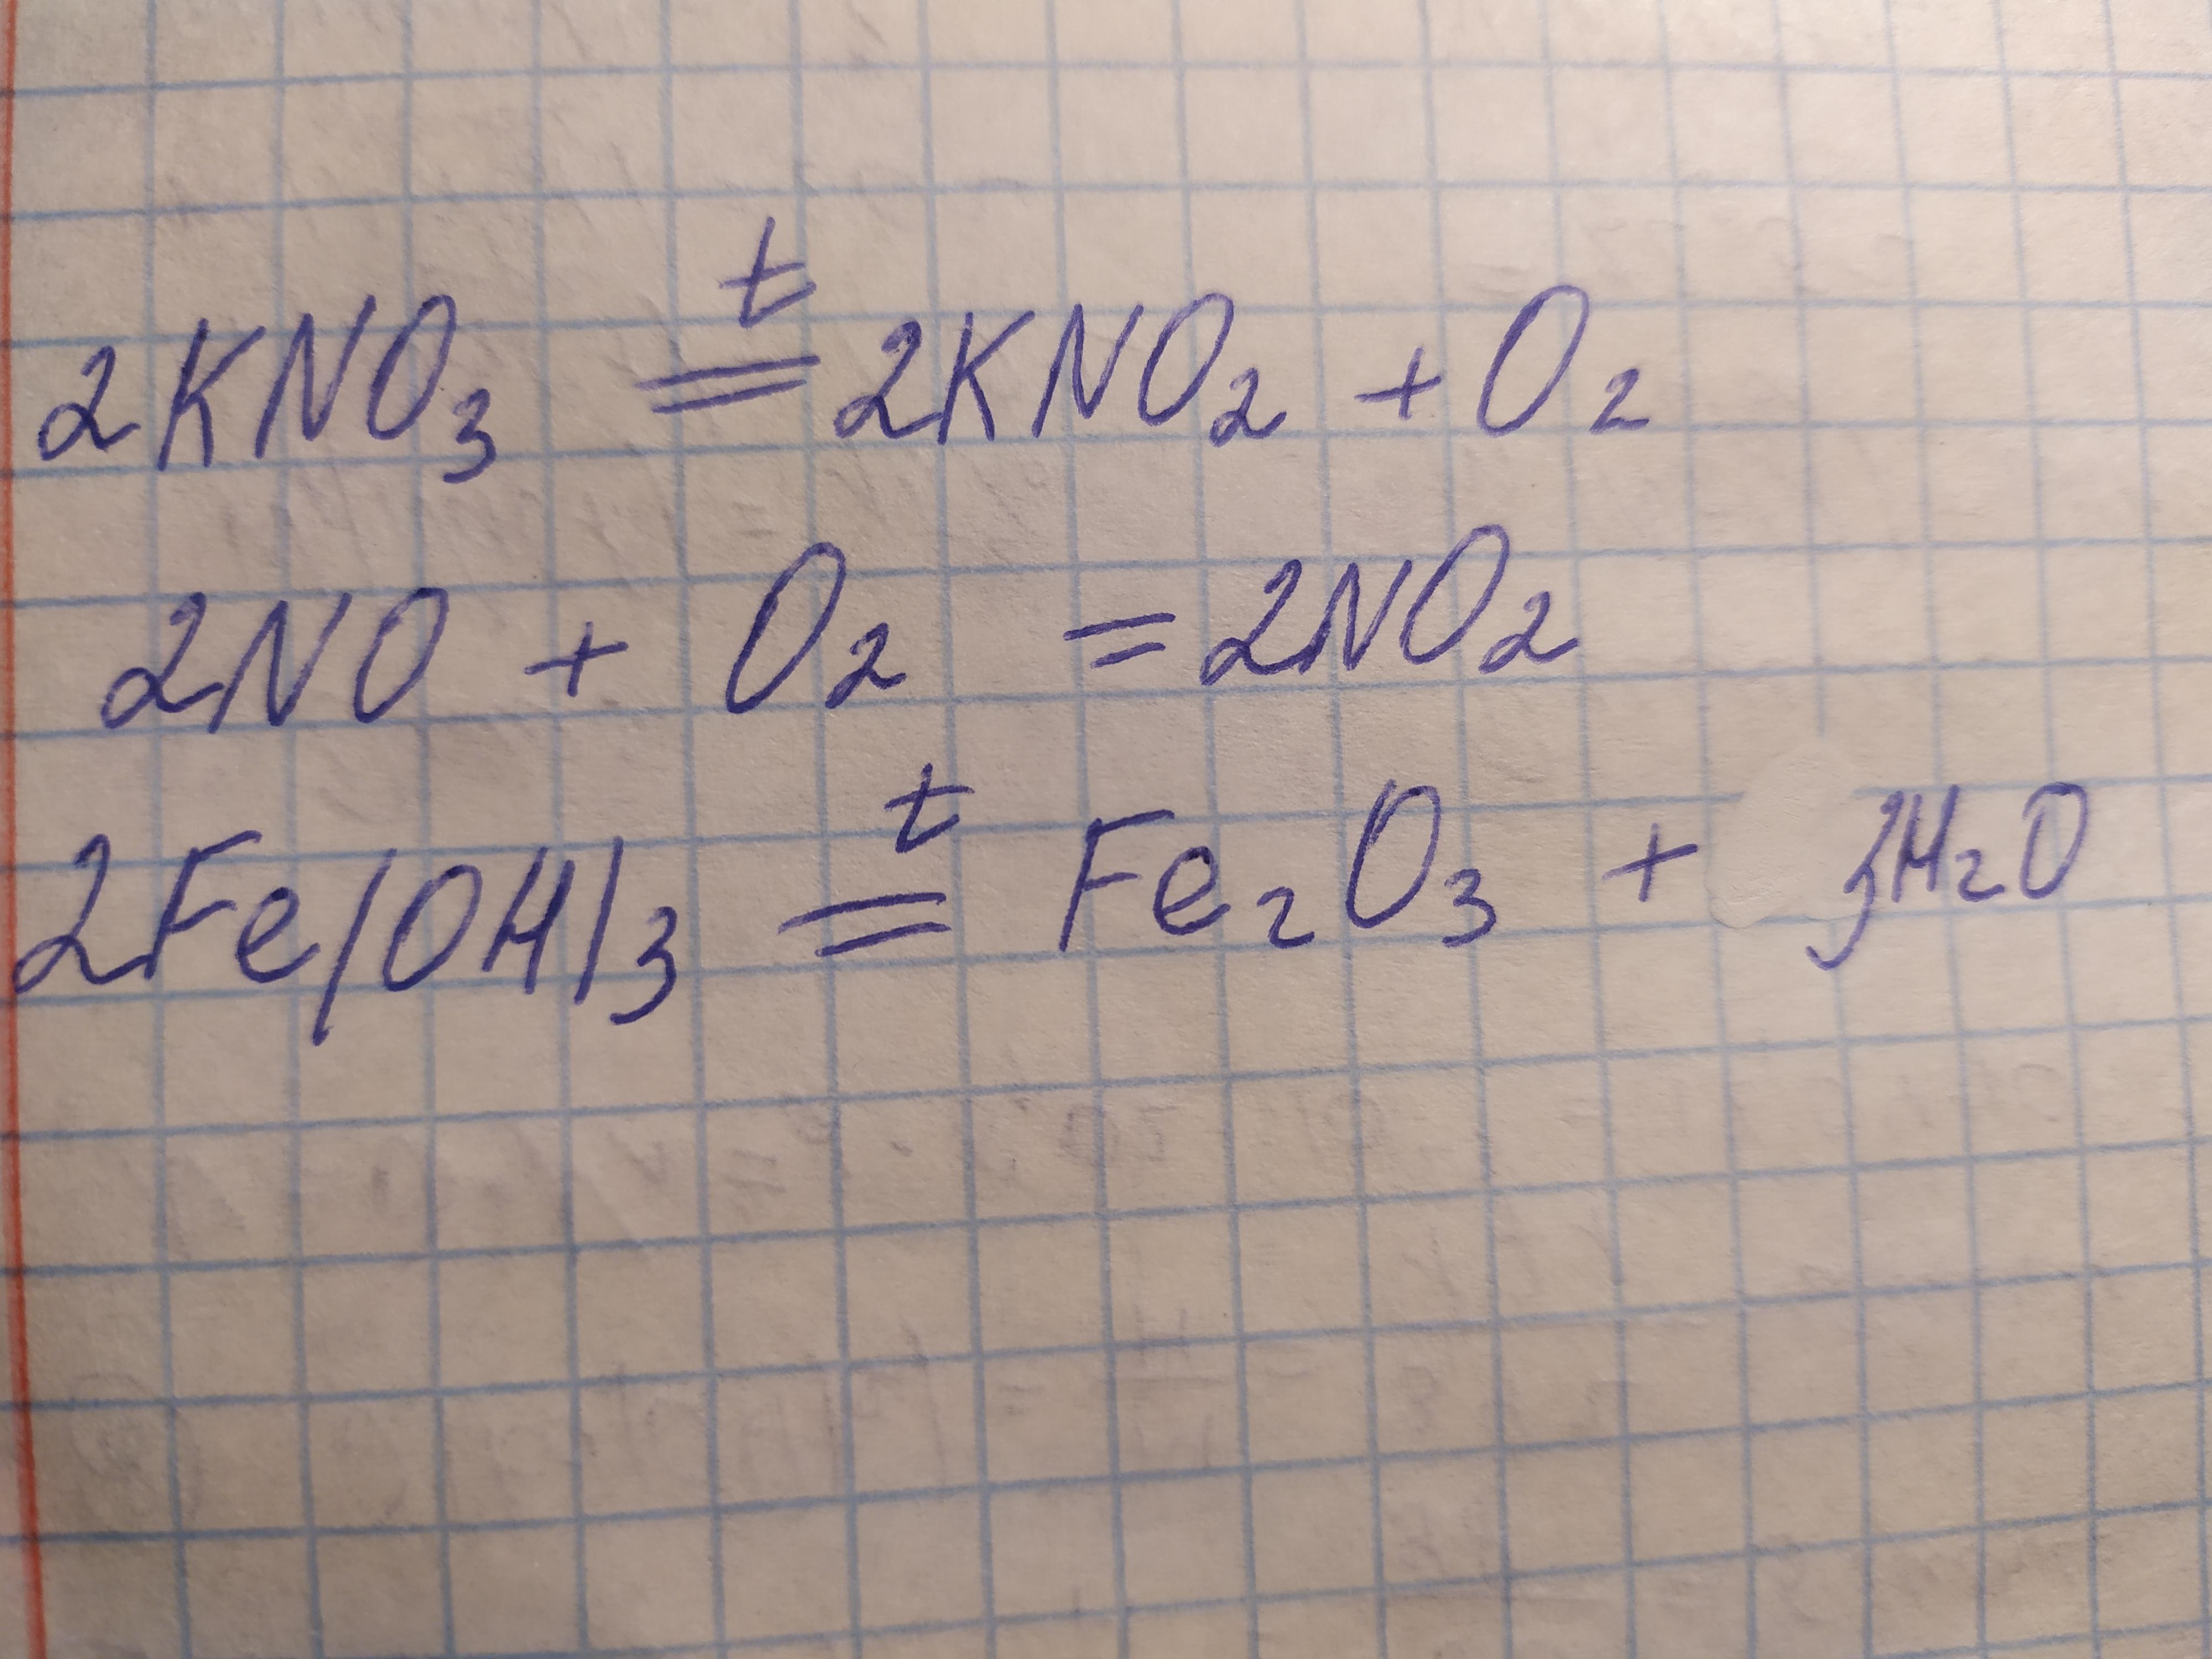 2KNO₃ =ᵗ 2KNO₂ + O₂
2NO + O₂ = 2NO₂
2Fe(OH)₃ =ᵗ Fe₂O₃ + 3H₂O